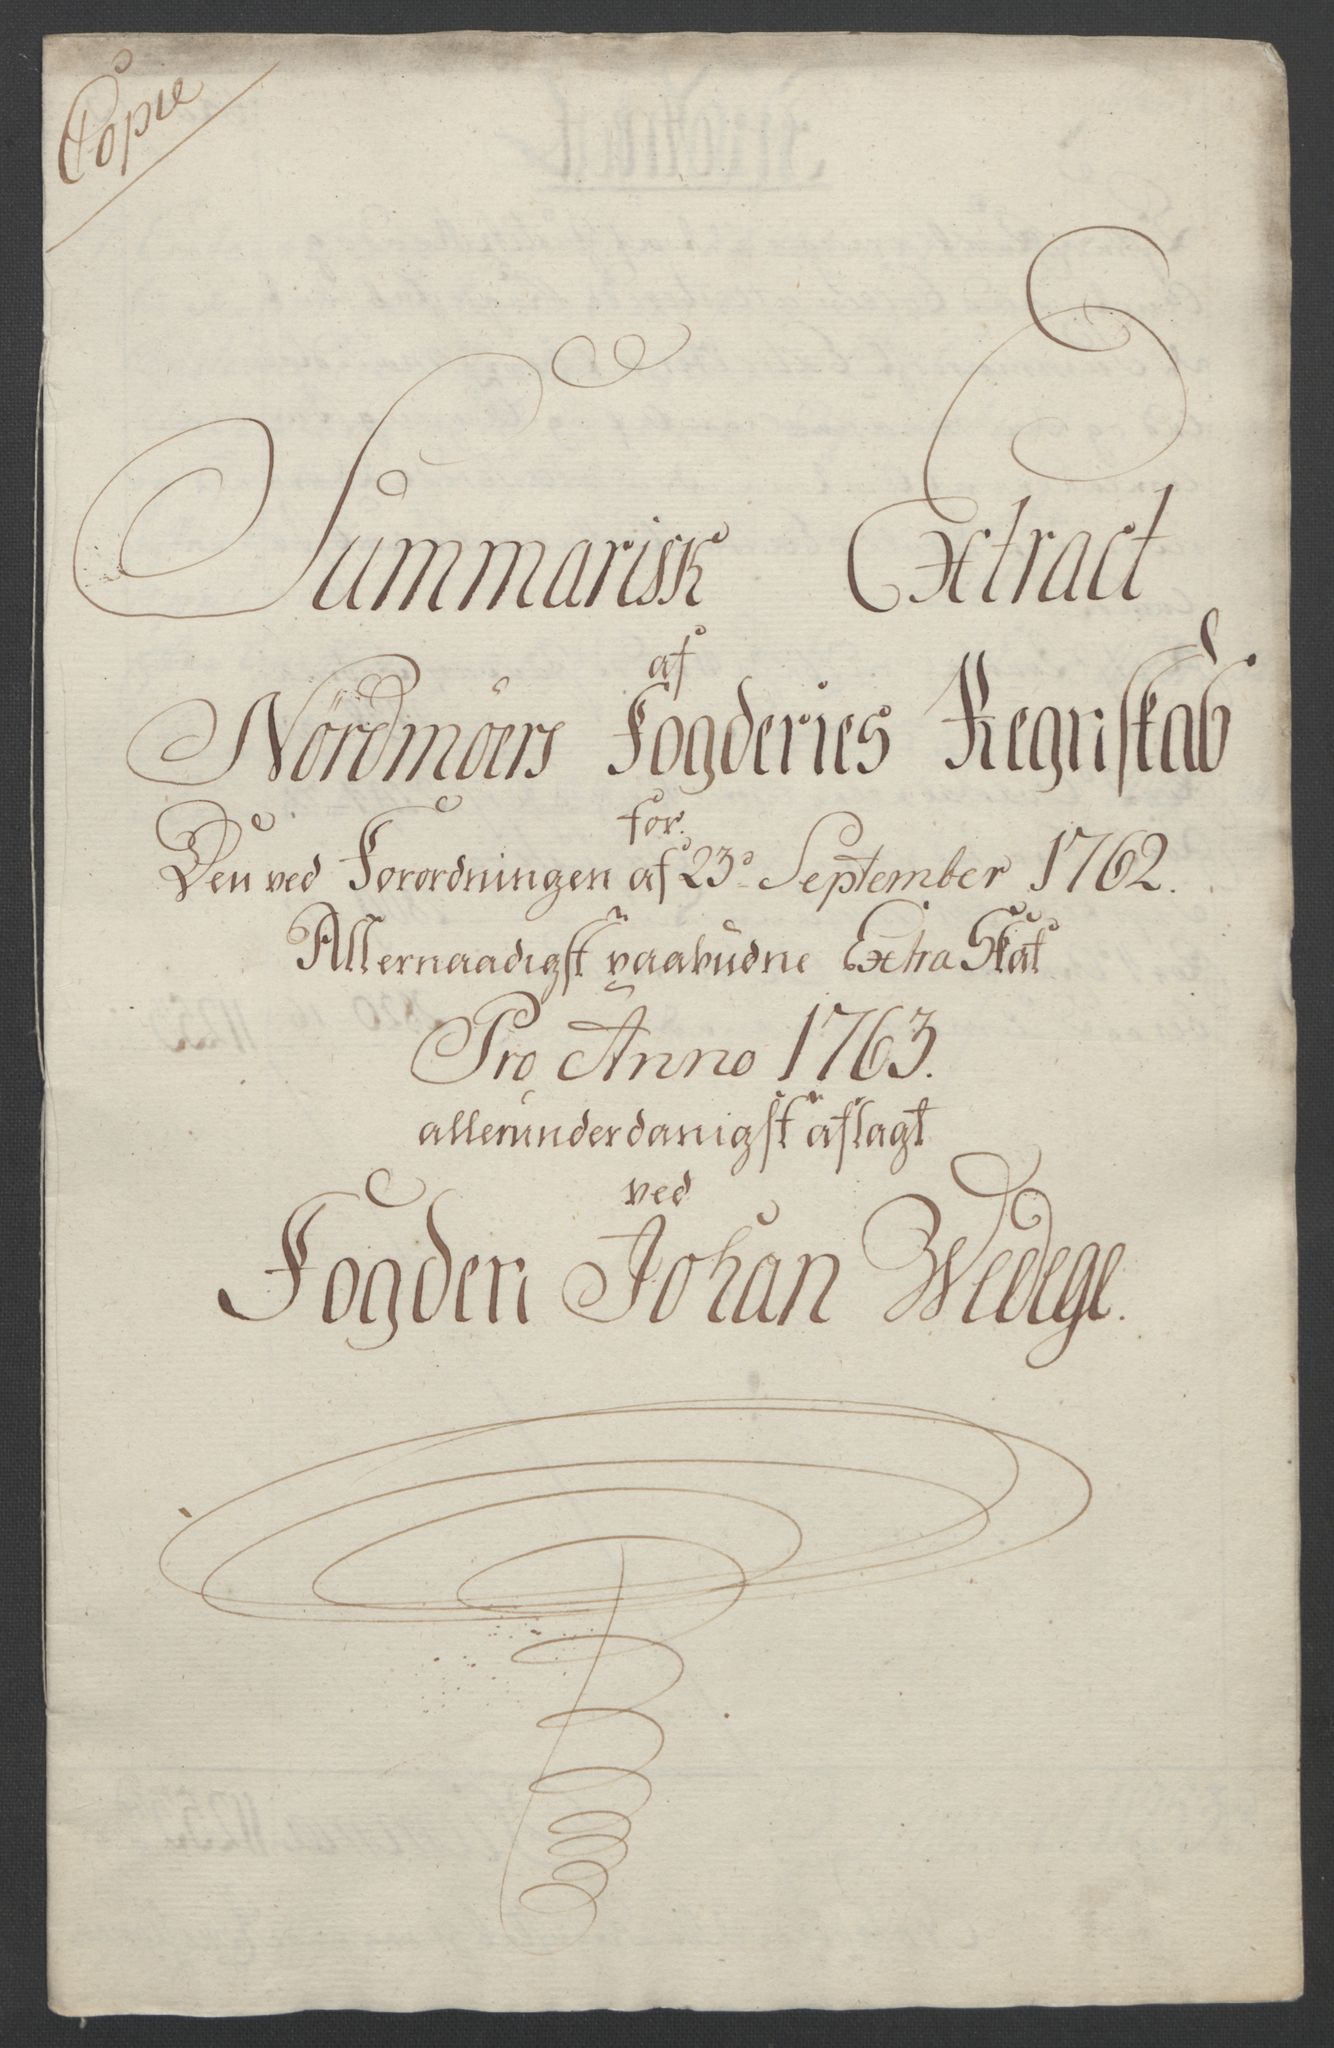 Copie
Summarisk Extract
af
Nordmøers Fogderies Regnskab
for
Den ved Forordningen af 23de September 1762.
Allernaadigst paabudne Extra Skat
Pro Anno 1763.
allerunderdanigst aflagt
ved
Fogden Johan Wedege.